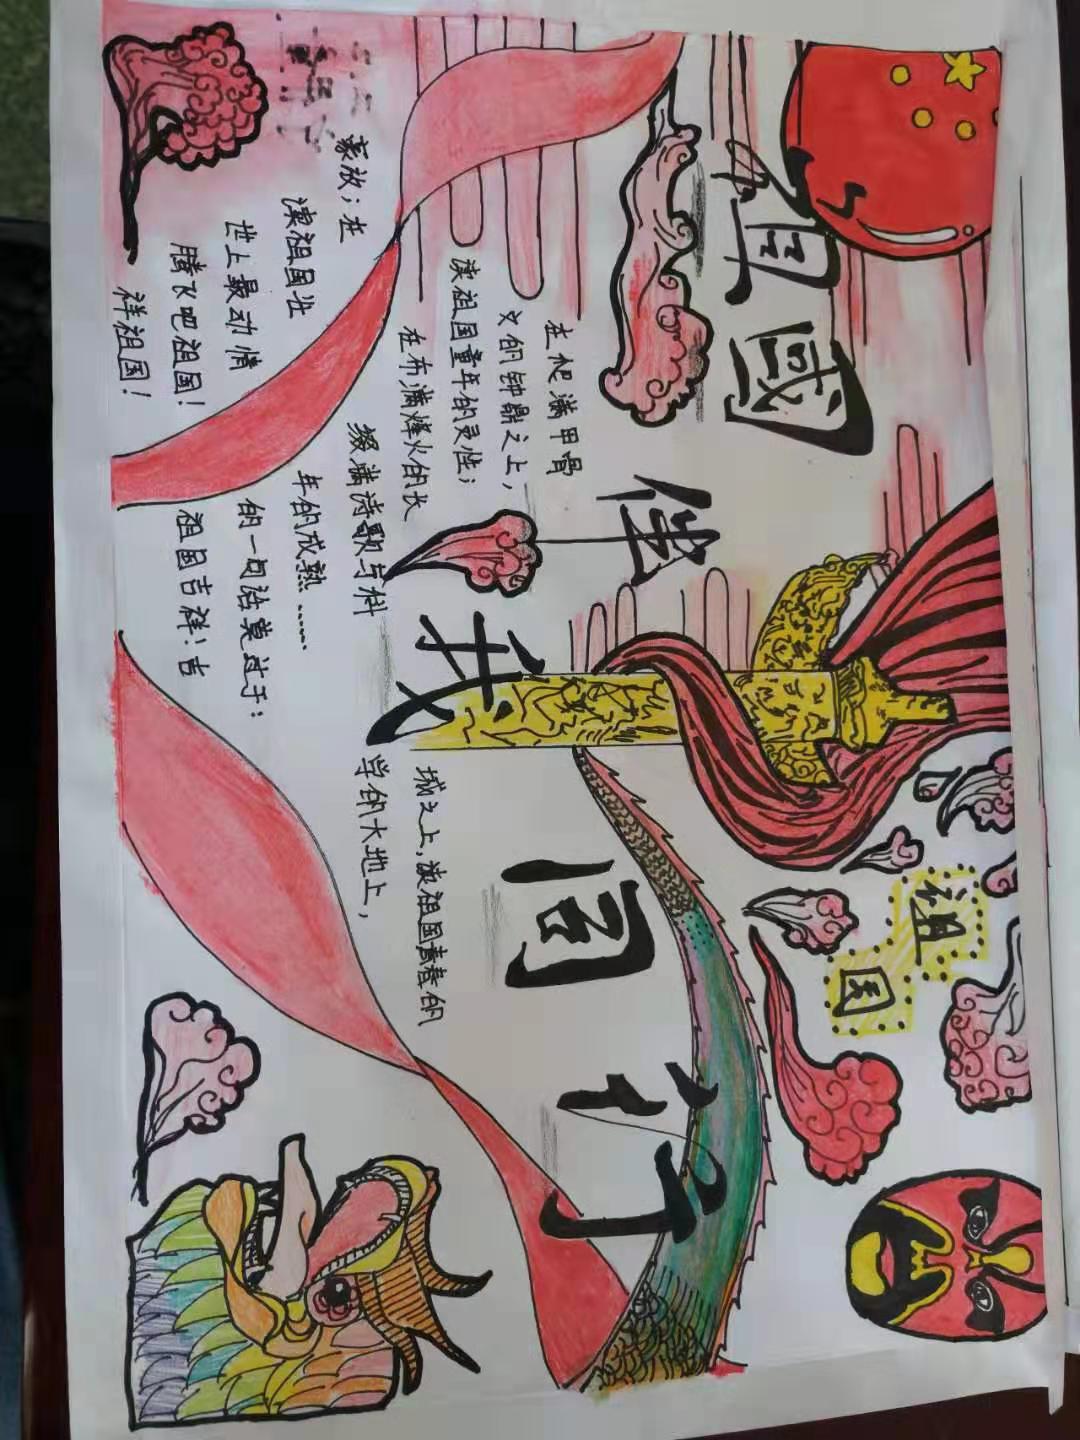 祖國伴我同行
祖国
在爬满甲骨
文的钟鼎之上，
读祖国童年的灵性；
在布满烽火的长
城之上，读祖国青春的
豪放；在
缀满诗歌与科
学的大地上，
读祖国壮
年的成熟……
世上最动情
的一句话莫过于：
腾飞吧祖国！
祖国吉祥！吉
祥祖国！